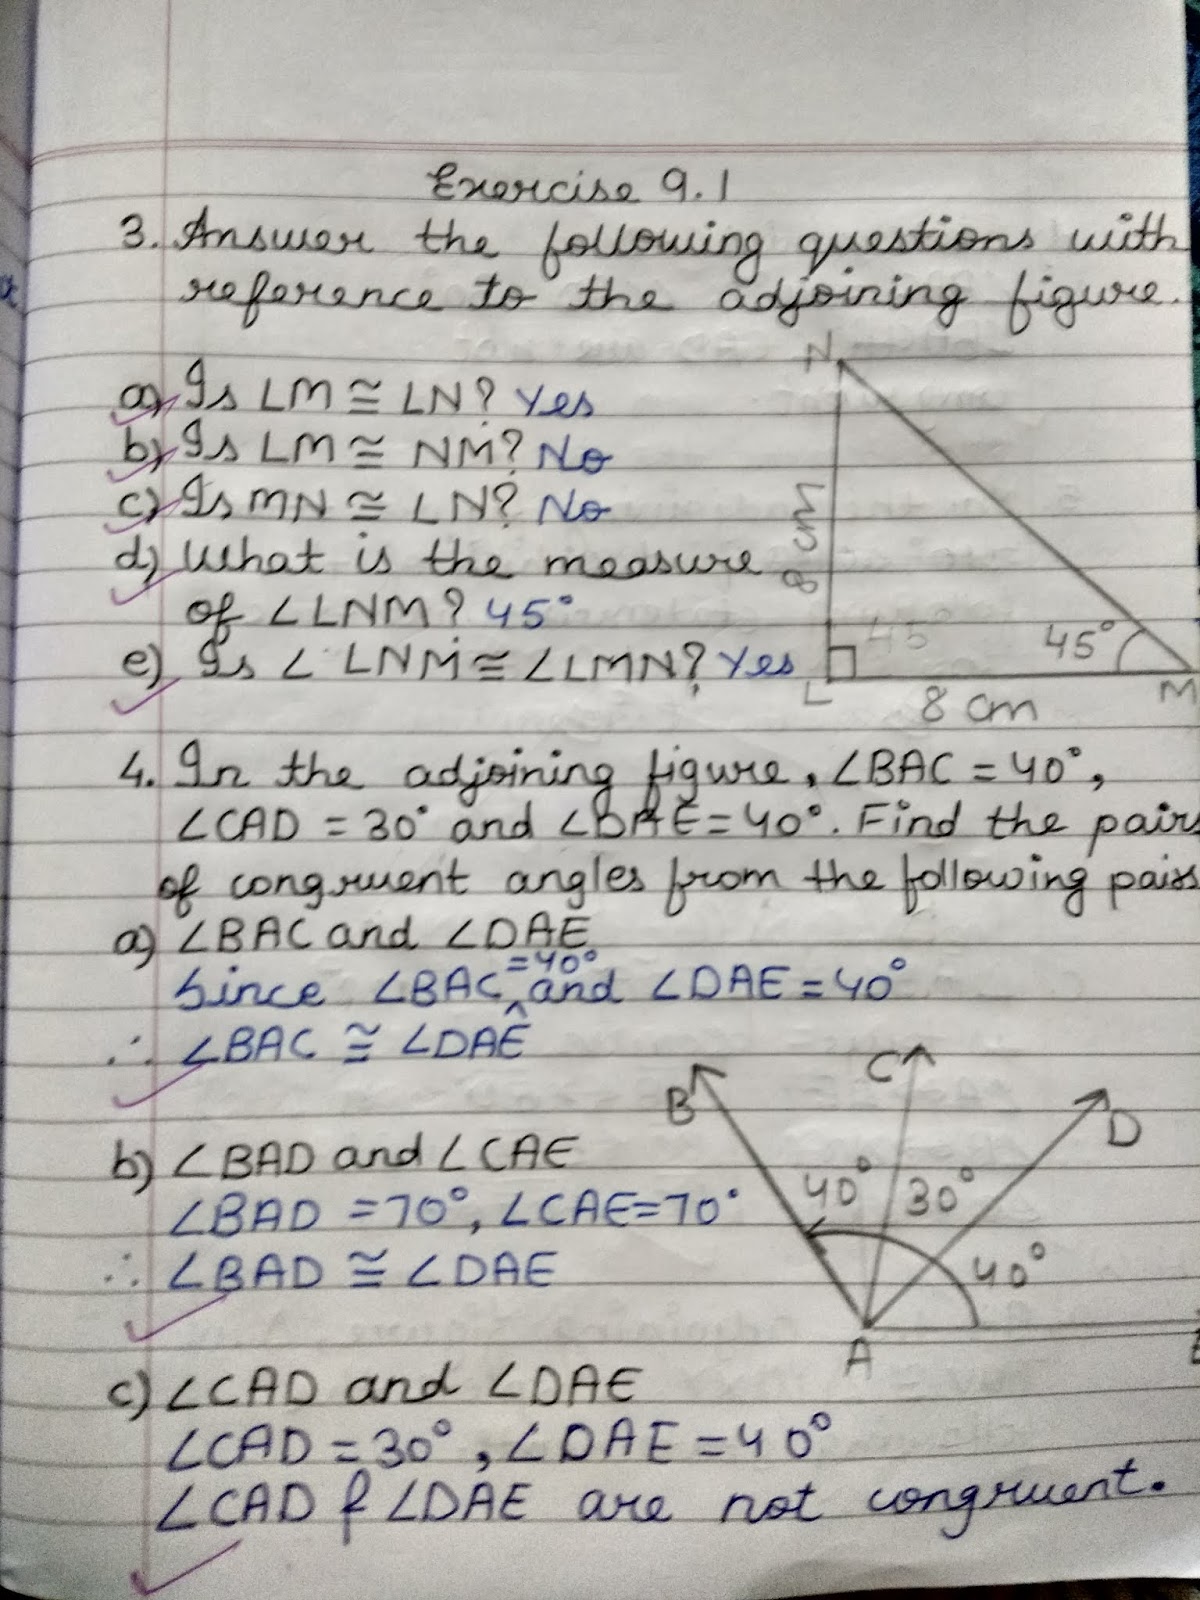 Exercise 9.1
3. Answer the following questions with
reference to the adjoining figure.
a) Is LM ≅ LN? Yes
b) Is LM ≅ NM? No
c) Is MN ≅ LN? No
d) What is the measure
of ∠LNM? 45°
e) Is ∠ LNM ≅ ∠LMN? Yes
N
8 cm
45°
45°
L
8 cm
M
4. In the adjoining figure, ∠BAC = 40°,
∠CAD = 30° and ∠DAE = 40°. Find the pairs
of congruent angles from the following pairs
a) ∠BAC and ∠DAE
Since ∠BAC = 40° and ∠DAE = 40°
∴ ∠BAC ≅ ∠DAE
b) ∠BAD and ∠CAE
∠BAD = 70°, ∠CAE = 70°
∴ ∠BAD ≅ ∠DAE
B
C
D
40°
30°
40°
A
c) ∠CAD and ∠DAE
∠CAD = 30°, ∠DAE = 40°
∠CAD & ∠DAE are not congruent.